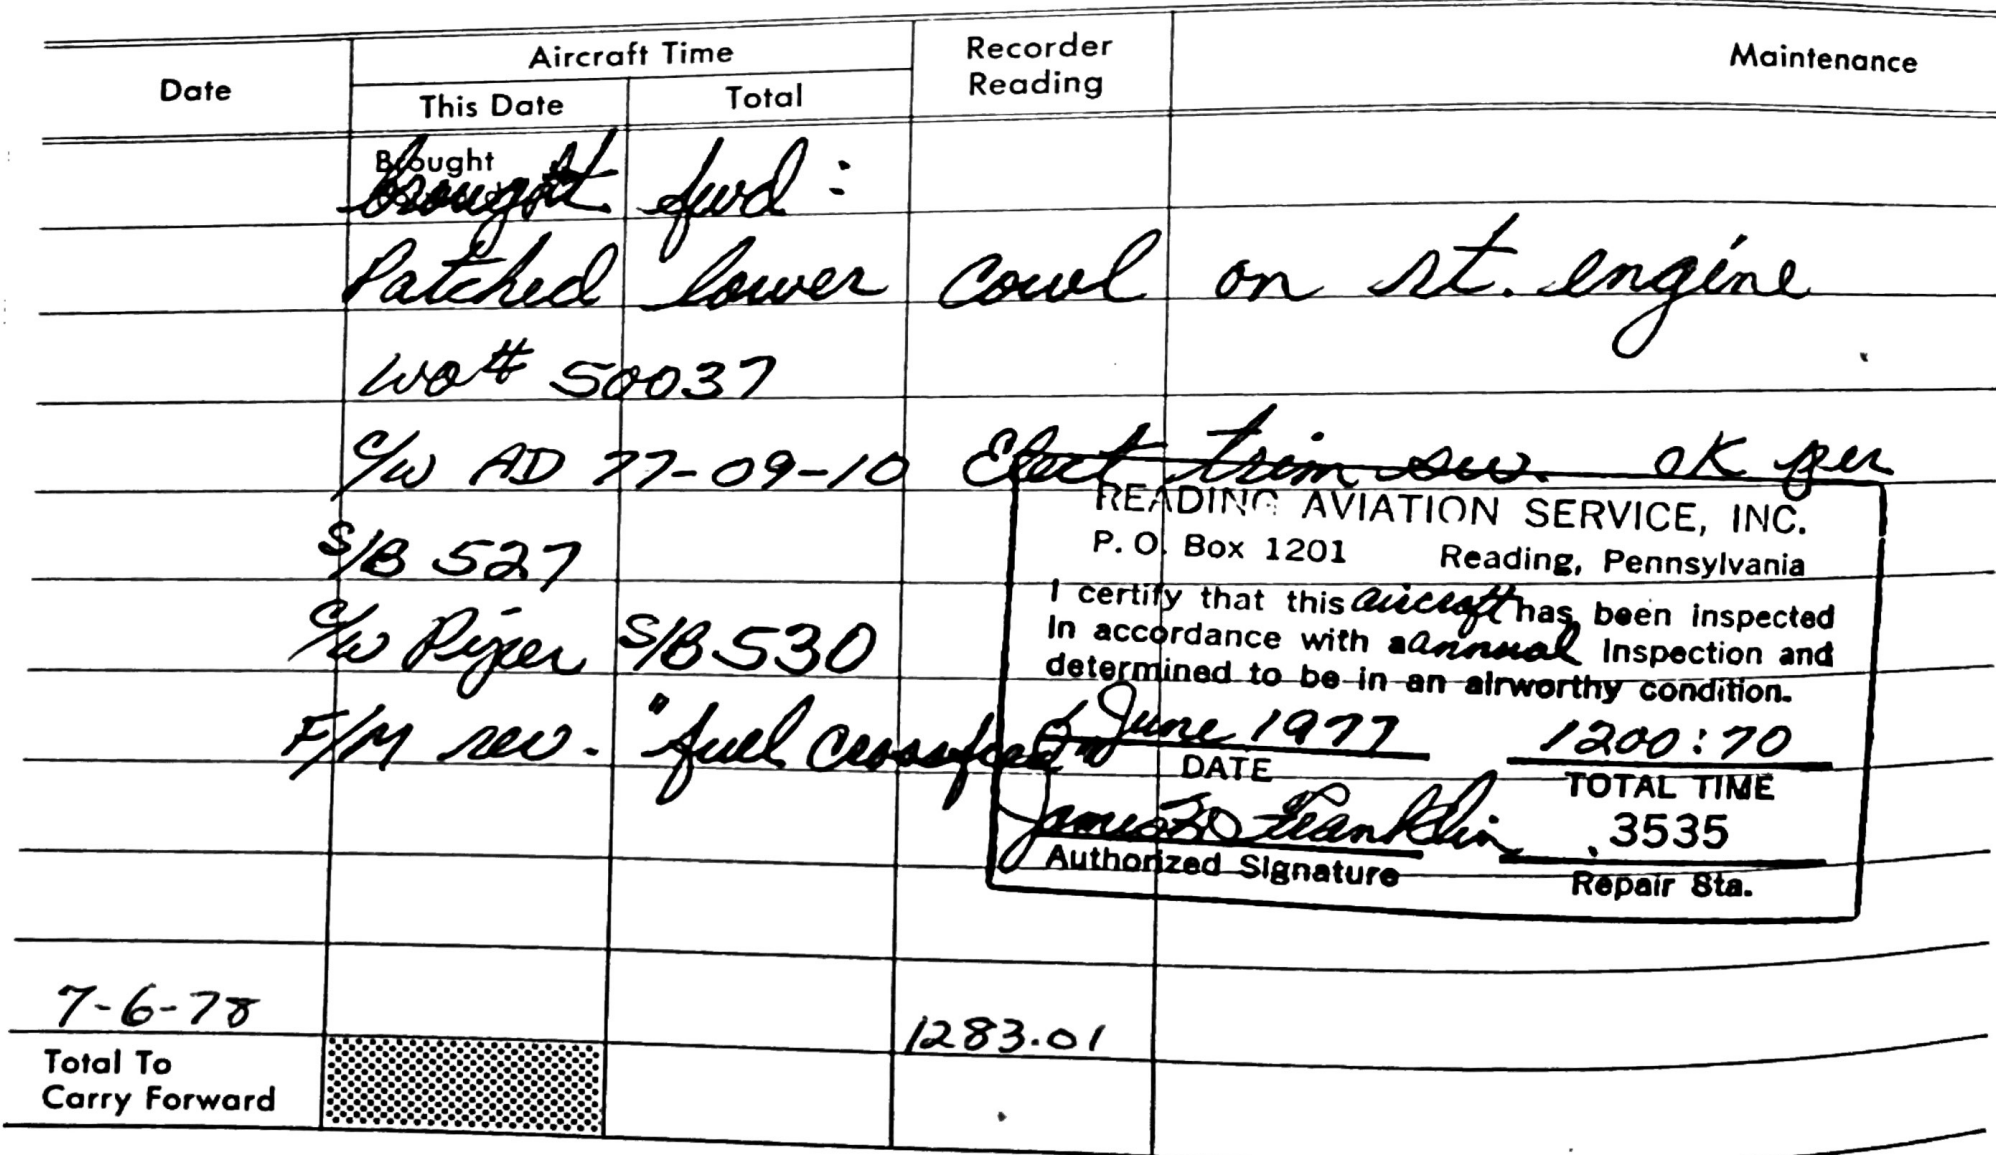 Date
Aircraft Time
This Date
Total
Recorder
Reading
Maintenance
Brought
brought fwd:
Patched lower cowl on rt. engine
WO# 50037
C/W AD 77-09-10 Elect trim sw. OK per
S/B 527
C/W Piper S/B 530
F/M rev. "fuel crossfeed"
READING AVIATION SERVICE, INC.
P. O. Box 1201 Reading, Pennsylvania
I certify that this aircraft has been inspected
in accordance with a annual inspection and
determined to be in an airworthy condition.
June 1977 1200:70
DATE TOTAL TIME
Franklin 3535
Authorized Signature Repair Sta.
7-6-78 1283.01
Total To
Carry Forward